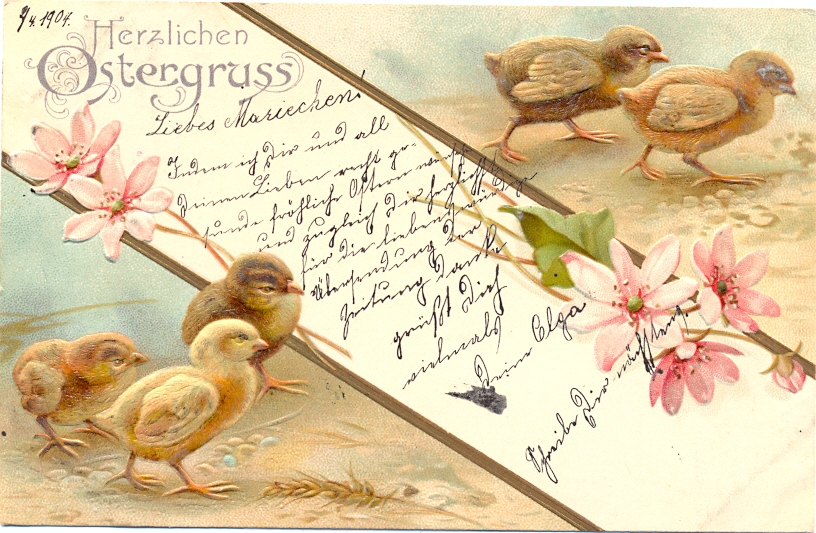 9/4. 1904.
Herzlichen
Ostergruss
Liebes Mariechen!
Indem ich Dir und all
Deinen Lieben recht ge-
sunde fröhliche Ostern wünsche
und zugleich Dir herzlichst
für die liebenswürdige
Übersendung der
Zeitung danke
grüßt Dich
vielmals
Deine Olga
Schreibe Dir nächstens